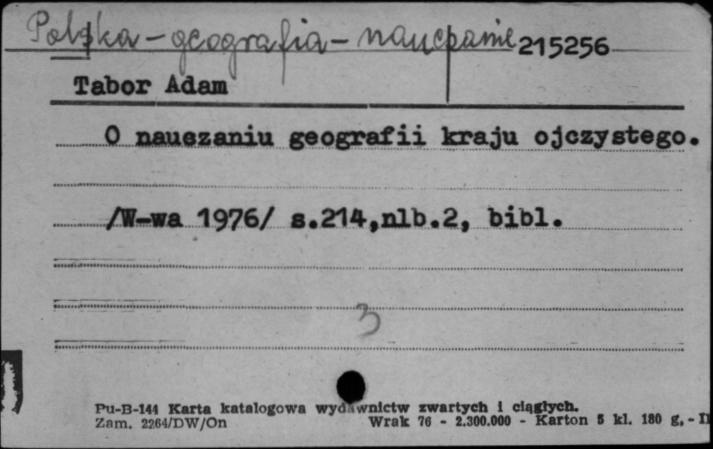 Polska - geografia - nauczanie 215256
Tabor Adam
O nauczaniu geografii kraju ojczystego.
/W-wa 1976/ s.214,nlb.2, bibl.
3
Pu-B-144 Karta katalogowa wydawnictw zwartych i ciągłych.
Zam. 2264/DW/On Wrak 76 - 2.300.000 - Karton 5 kl. 180 g, - II